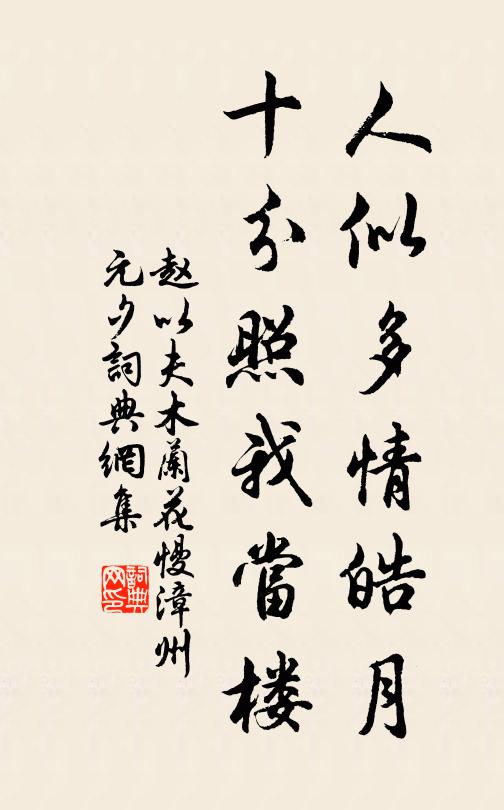 人似多情皓月
十分照我當楼
赵以夫木蘭花慢漳州
元夕詞典網集
詞典网印